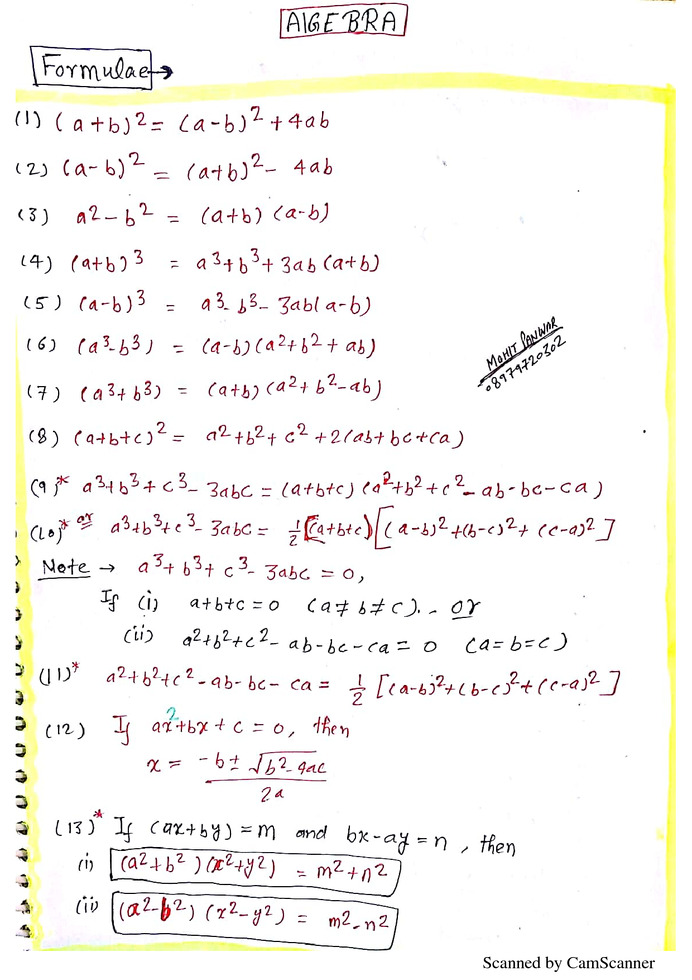 AlGEBRA
Formulae→
(1) (a+b)² = (a-b)² + 4ab
(2) (a-b)² = (a+b)² - 4ab
(3) a² - b² = (a+b) (a-b)
(4) (a+b)³ = a³+b³+3ab (a+b)
(5) (a-b)³ = a³- b³- 3ab(a-b)
(6) (a³-b³) = (a-b) (a²+b²+ab)
MOHIT PANWAR
08979720302
(7) (a³+b³) = (a+b) (a²+b²-ab)
(8) (a+b+c)² = a²+b²+c²+2(ab+bc+ca)
(9)* a³+b³+c³- 3abc = (a+b+c) (a²+b²+c²-ab-bc-ca)
(10)* or a³+b³+c³- 3abc = 1/2 [(a+b+c) [(a-b)²+(b-c)²+(c-a)²]
Note → a³+b³+c³- 3abc = 0,
If (i) a+b+c = 0 (a≠b≠c). or
(ii) a²+b²+c²-ab-bc-ca = 0 (a=b=c)
(11)* a²+b²+c²-ab-bc-ca = 1/2 [(a-b)²+(b-c)²+(c-a)²]
(12) If ax²+bx+c = 0, then
x = -b±√b²-4ac
2a
(13)* If (ax+by)=m and bx-ay=n, then
(i) (a²+b²)(x²+y²) = m²+n²
(ii) (a²-b²) (x²-y²) = m²-n²
Scanned by CamScanner